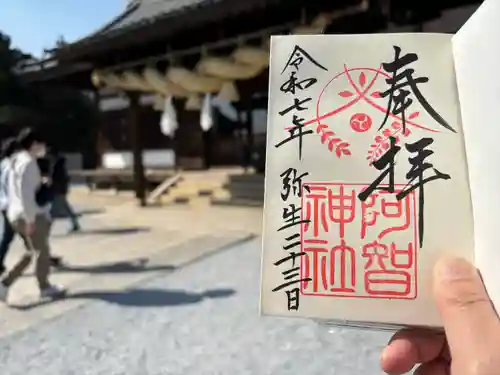 奉拝
阿智
神社
令和七年
弥生二十三日